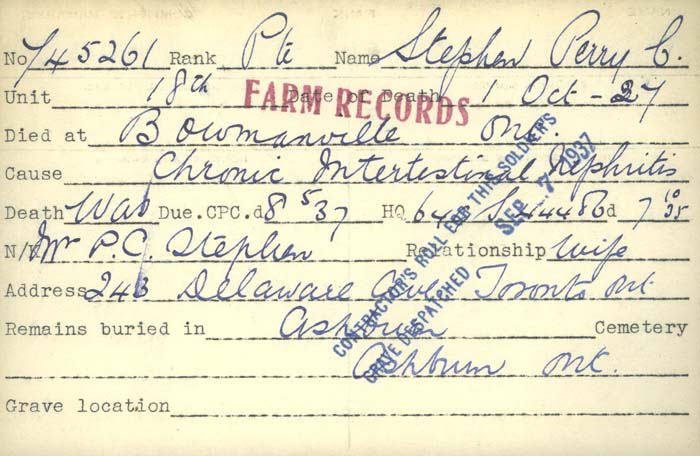 No 745261 Rank Pte Name Stephen Perry C.
Unit 18th Date of Death 1 Oct - 27
FARM RECORDS
Died at Bowmanville Ont.
Cause Chronic Intertestinal Nephritis
Death Was Due. CPC. d 8 5 37 HQ 649 S 14486 d 7 10 35
N/K Mrs P.C. Stephen Relationship Wife
Address 243 Delaware Ave Toronto Ont
Remains buried in Ashburn Cemetery
Ashburn Ont.
Grave location
CONTRACTOR'S ROLL FOR THIS SOLDIER'S
GRAVE DESPATCHED SEP 7 1937